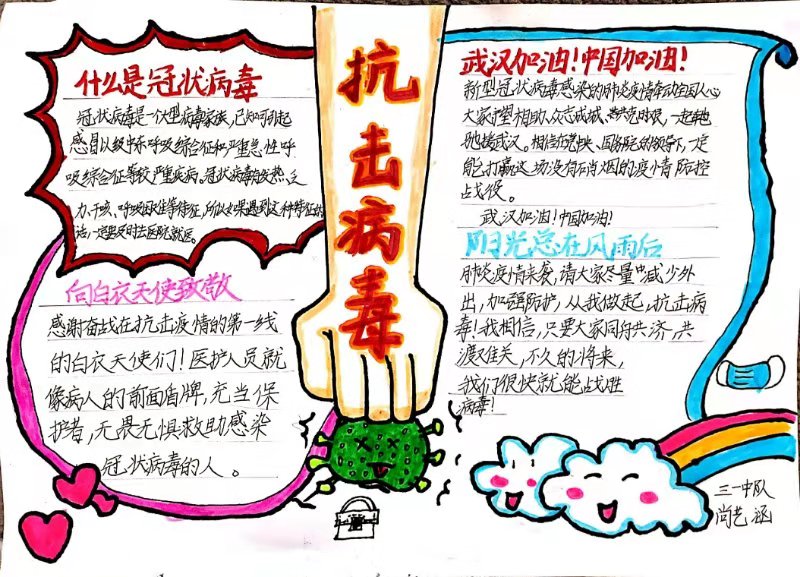 什么是冠状病毒
冠状病毒是一个大型病毒家族,已知可引起
感冒以及中东呼吸综合征和严重急性呼
吸综合征等较严重疾病。冠状病毒有发热、乏
力、干咳、呼吸困难等特征,所以如果遇到这种特征的
话,一定要及时去医院就医。
向白衣天使致敬
感谢奋战在抗击疫情的第一线
的白衣天使们!医护人员就
像病人的前面盾牌,充当保
护者,无畏无惧救助感染
冠状病毒的人。
抗击病毒
武汉加油!中国加油!
新型冠状病毒感染的肺炎疫情牵动全国人心
大家守望相助、众志成城、一起
驰援武汉。相信在党中央、国务院的领导下,一定
能打赢这场没有硝烟的疫情防控
战役。
武汉加油!中国加油!
阳光总在风雨后
肺炎疫情来袭,请大家尽量减少外
出,加强防护,从我做起,抗击病
毒!我相信,只要大家同舟共济,共
渡难关,不久的将来,
我们很快就能战胜
病毒!
三一中队
尚艺涵